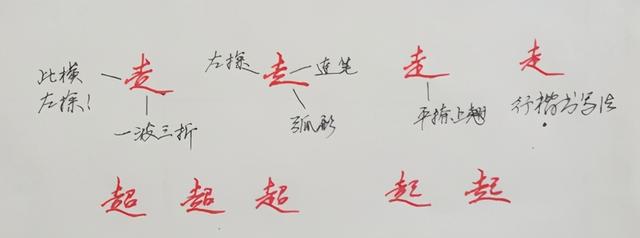 走
比横
左探!
一波三折
走
左探
连笔
弧形
走
平捺上翘
走
行楷书写法
超 超 超 起 起